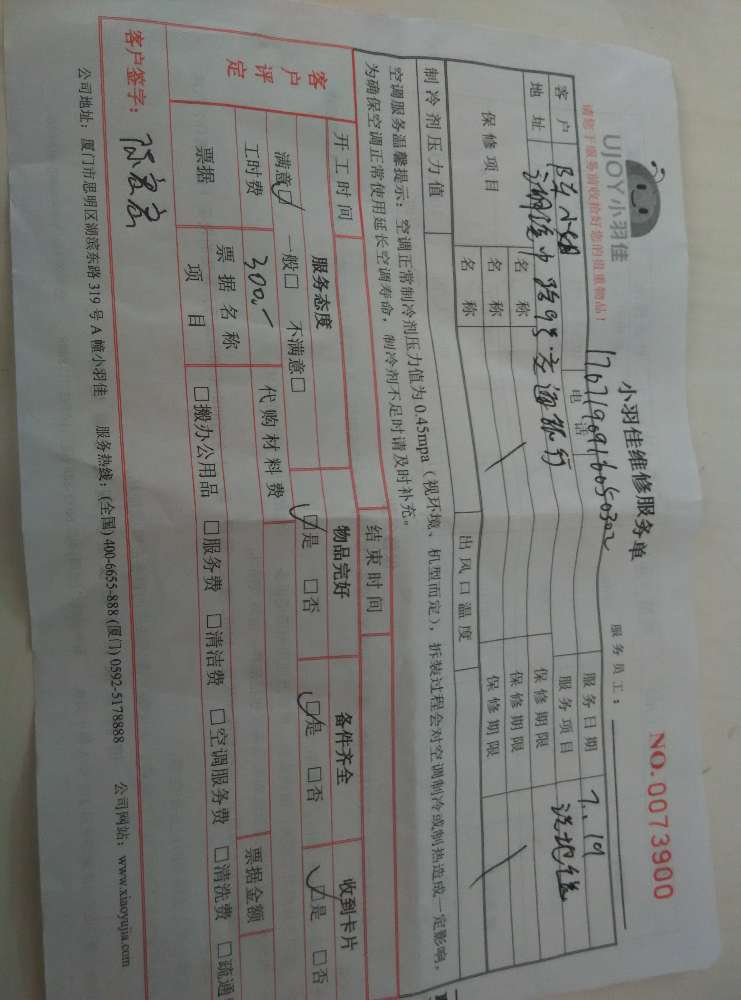 UJOY小羽佳
小羽佳维修服务单
NO. 0073900
请您于服务前收拾好您的贵重物品！
服务员工：
客户 陈小姐 电话 服务日期 7.19
地址 服务项目
保修项目 名称 保修期限
名称 保修期限
名称 保修期限
制冷剂压力值 出风口温度
空调服务温馨提示：空调正常制冷剂压力值为 0.45mpa（视环境、机型而定），拆装过程会对空调制冷或制热造成一定影响，
为确保空调正常使用延长空调寿命，制冷剂不足时请及时补充。
开工时间 结束时间
客户评定 服务态度 物品完好 备件齐全 收到卡片
满意☑ 一般□ 不满意□ ☑是 □否 ☑是 □否 ☑是 □否
工时费 300.- 代购材料费
票据 票据名称 票据金额
项目 □搬办公用品 □服务费 □清洁费 □空调服务费 □清洗费 □疏通
客户签字：
公司地址：厦门市思明区湖滨东路 319 号 A 幢小羽佳 服务热线：(全国) 400-6655-888 (厦门) 0592-5178888 公司网站：www.xiaoyujia.com